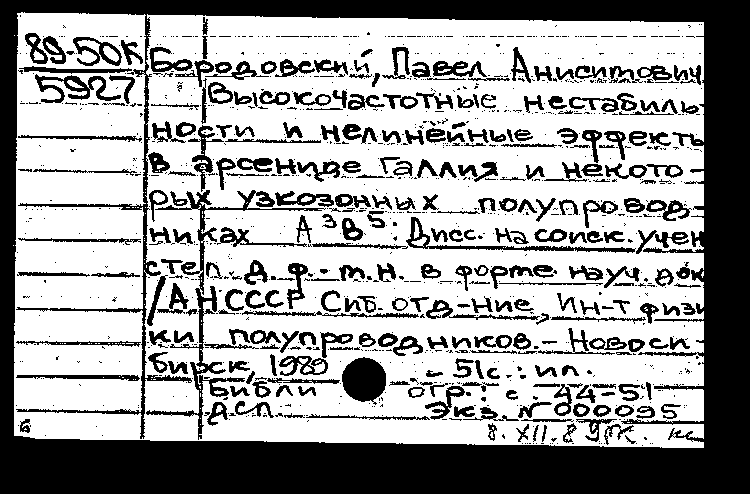 89-50К
5927
Бородовский, Павел Анисимович
Высокочастотные нестабиль-
ности и нелинейные эффекты
в арсениде галлия и некото-
рых узкозонных полупровод-
никах А³В⁵: Дисс. на соиск. учен
степ. д. ф.-м.н. в форме науч. док
/АН СССР Сиб. отд-ние, Ин-т физи
ки полупроводников.- Новоси-
бирск, 1989 - 51с.: ил.
Библи огр.: с. 44-51
ДСП Экз. № 000095
6 8. XII. 89